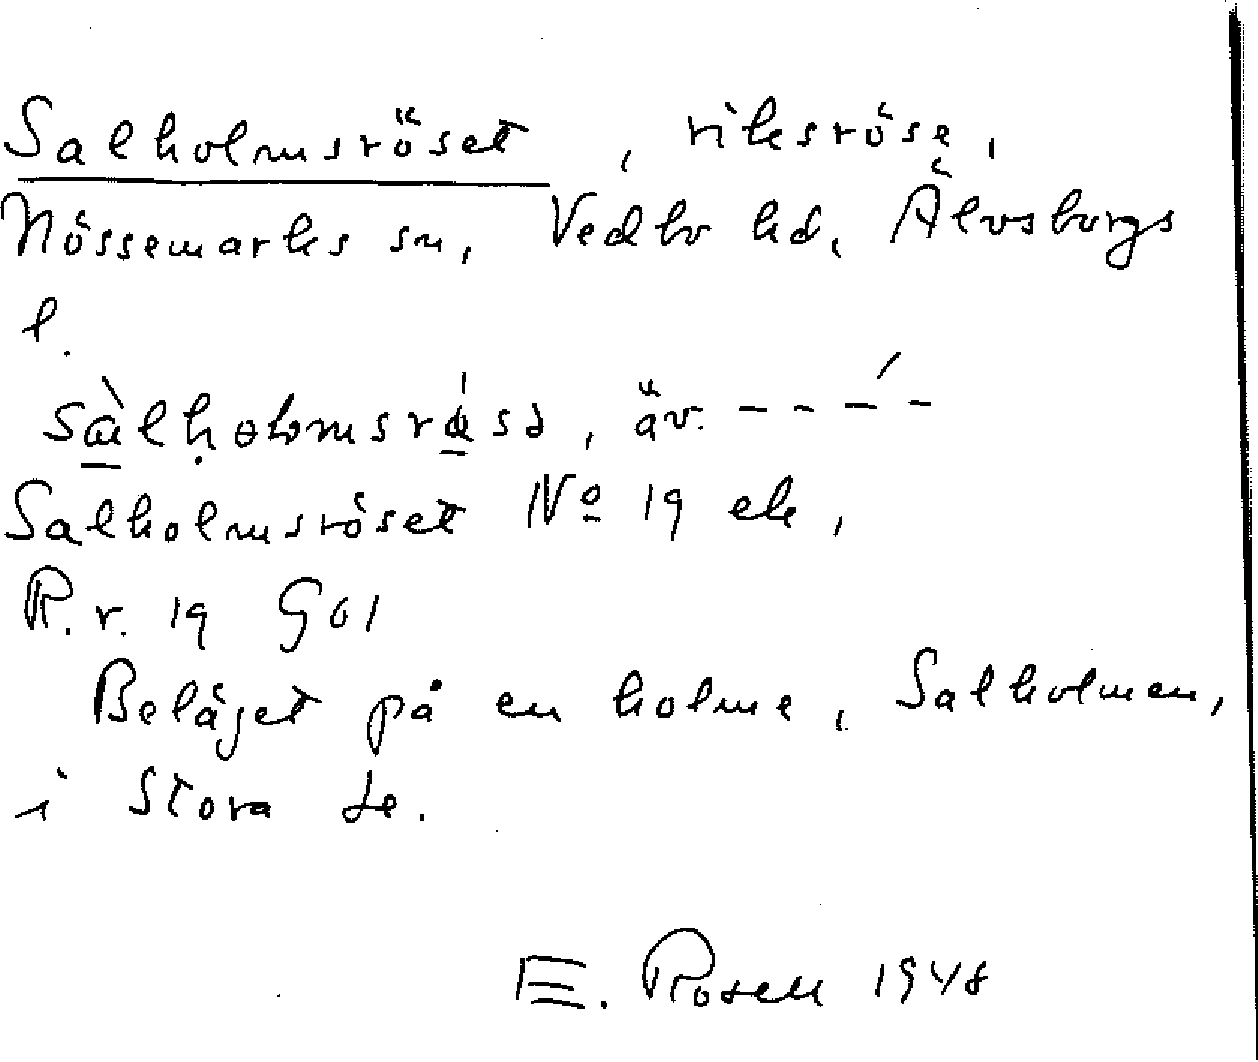 Salholmsröset, riksröse,
Nössemarks sn, Vedbo hd, Älvsborgs
l.
äv. – – –́ –
Salholmsröset No 19 ek,
R.r. 19 GSl
Beläget på en holme, Salholmen,
i Stora Le.
E. Rosell 1948